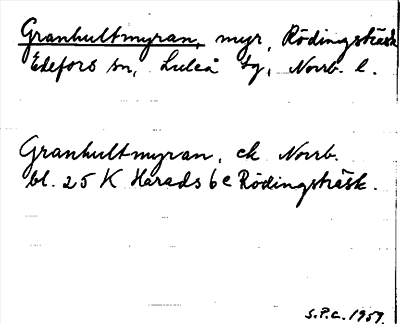 Granhultmyran, myr, Rödingsträsk
Edefors sn, Luleå tg, Norrb. l.
Granhultmyran, ek Norrb.
bl. 25 K Harads 6c Rödingsträsk.
S.P.C. 1959.